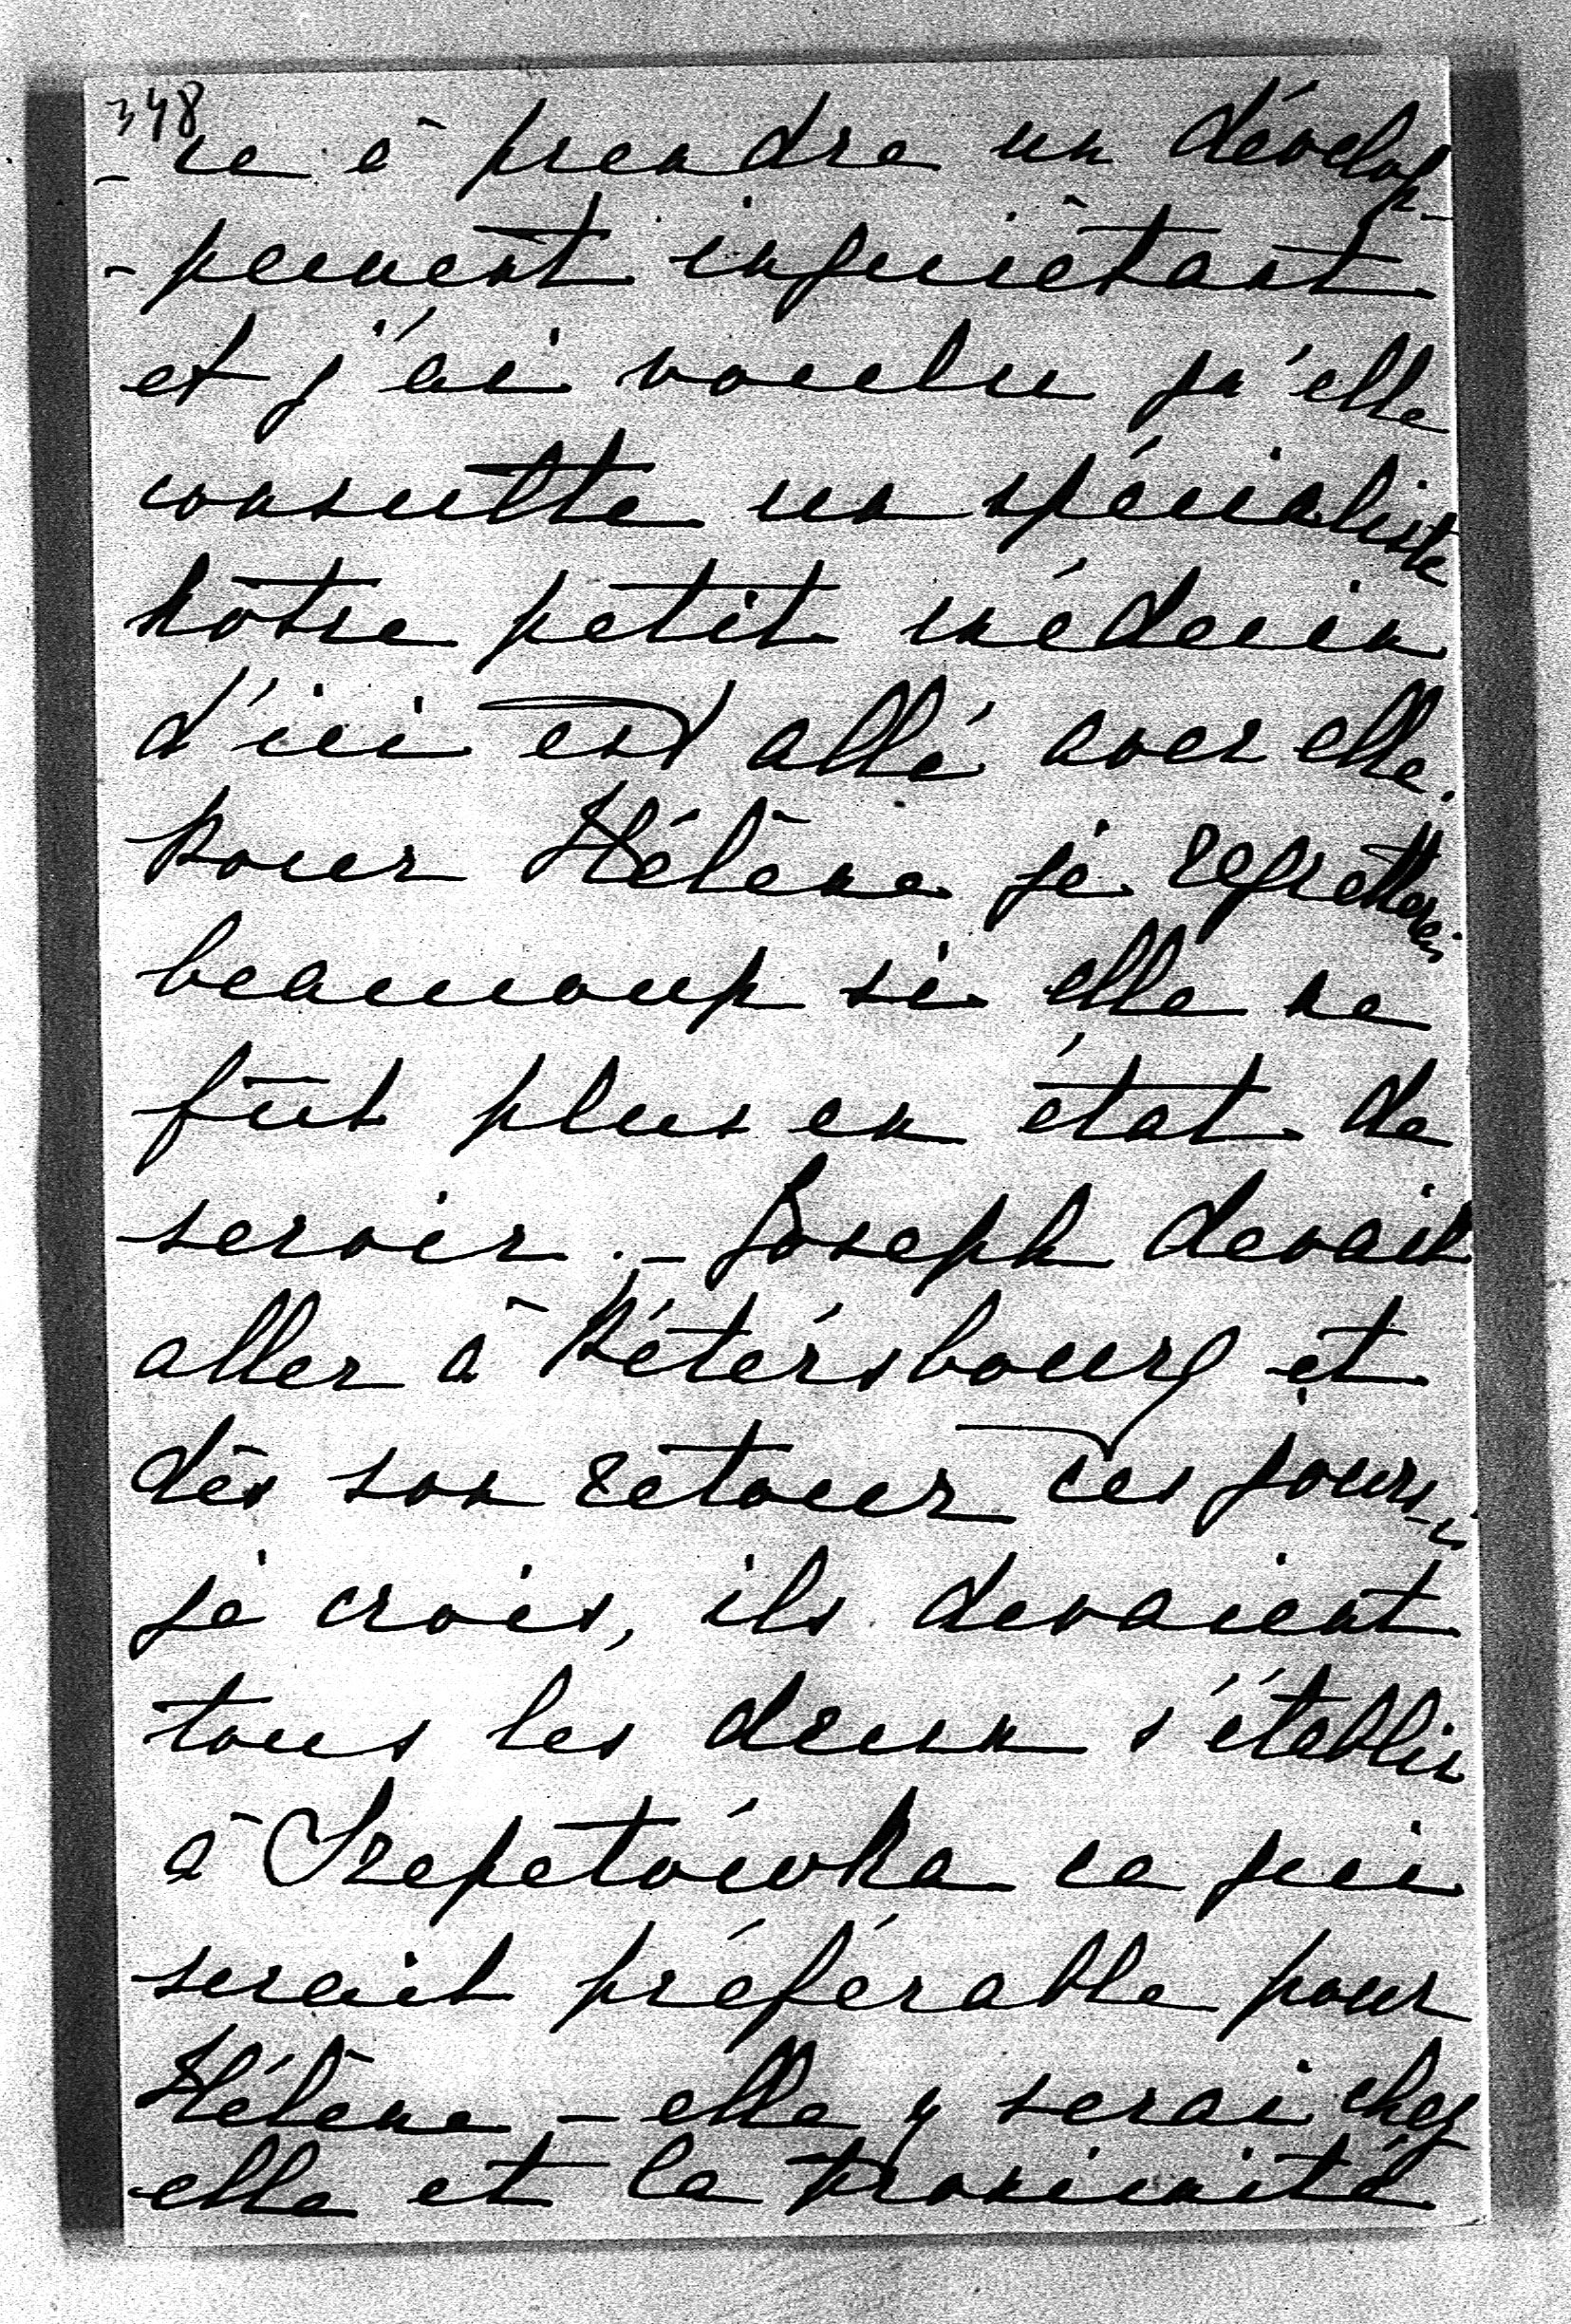 348
-ce à prendre un dévelop-
-pement inquiètant
et j'ai voulu qu'elle
consulte un spécialiste
nôtre petit médecin
d'ici est allé avec elle.
Pour Hélène je regretterai
beaucoup si elle ne
fût plus en état de
servir. - Joseph devait
aller à Pétérsbourg et
dès son retour ces jours-ci
je crois, ils devaient
tous les deux s'établir
à Szepetówka ce qui
serait préférable pour
Hélène - elle y serai chez
elle et la proximité